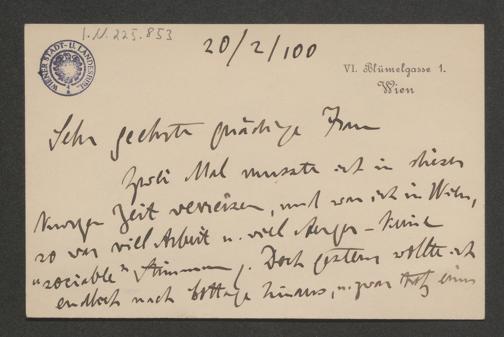 I.N. 225.853
20/2/100
WIENER STADT- U. LANDESBIBL.
VI. Blümelgasse 1.
Wien
Sehr geehrte gnädige Frau
Zwei Mal musste ich in dieser
kurzen Zeit verreisen, und war ich in Wien,
so war viel Arbeit u. viel Aerger - keine
"sociable" Stimmung. Doch gestern wollte ich
endlich nach hinaus, u. zwar trotz eines